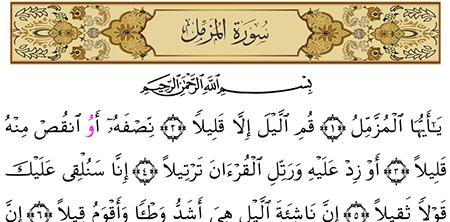 سورة المزمل
بسم الله الرحمن الرحيم
يَٰٓأَيُّهَا ٱلْمُزَّمِّلُ ﴿١﴾ قُمِ ٱلَّيْلَ إِلَّا قَلِيلًا ﴿٢﴾ نِّصْفَهُۥٓ أَوُ ٱنقُصْ مِنْهُ
قَلِيلًا ﴿٣﴾ أَوْ زِدْ عَلَيْهِ وَرَتِّلِ ٱلْقُرْءَانَ تَرْتِيلًا ﴿٤﴾ إِنَّا سَنُلْقِى عَلَيْكَ
قَوْلًا ثَقِيلًا ﴿٥﴾ إِنَّ نَاشِئَةَ ٱلَّيْلِ هِىَ أَشَدُّ وَطْـًٔا وَأَقْوَمُ قِيلًا ﴿٦﴾ إِنَّ